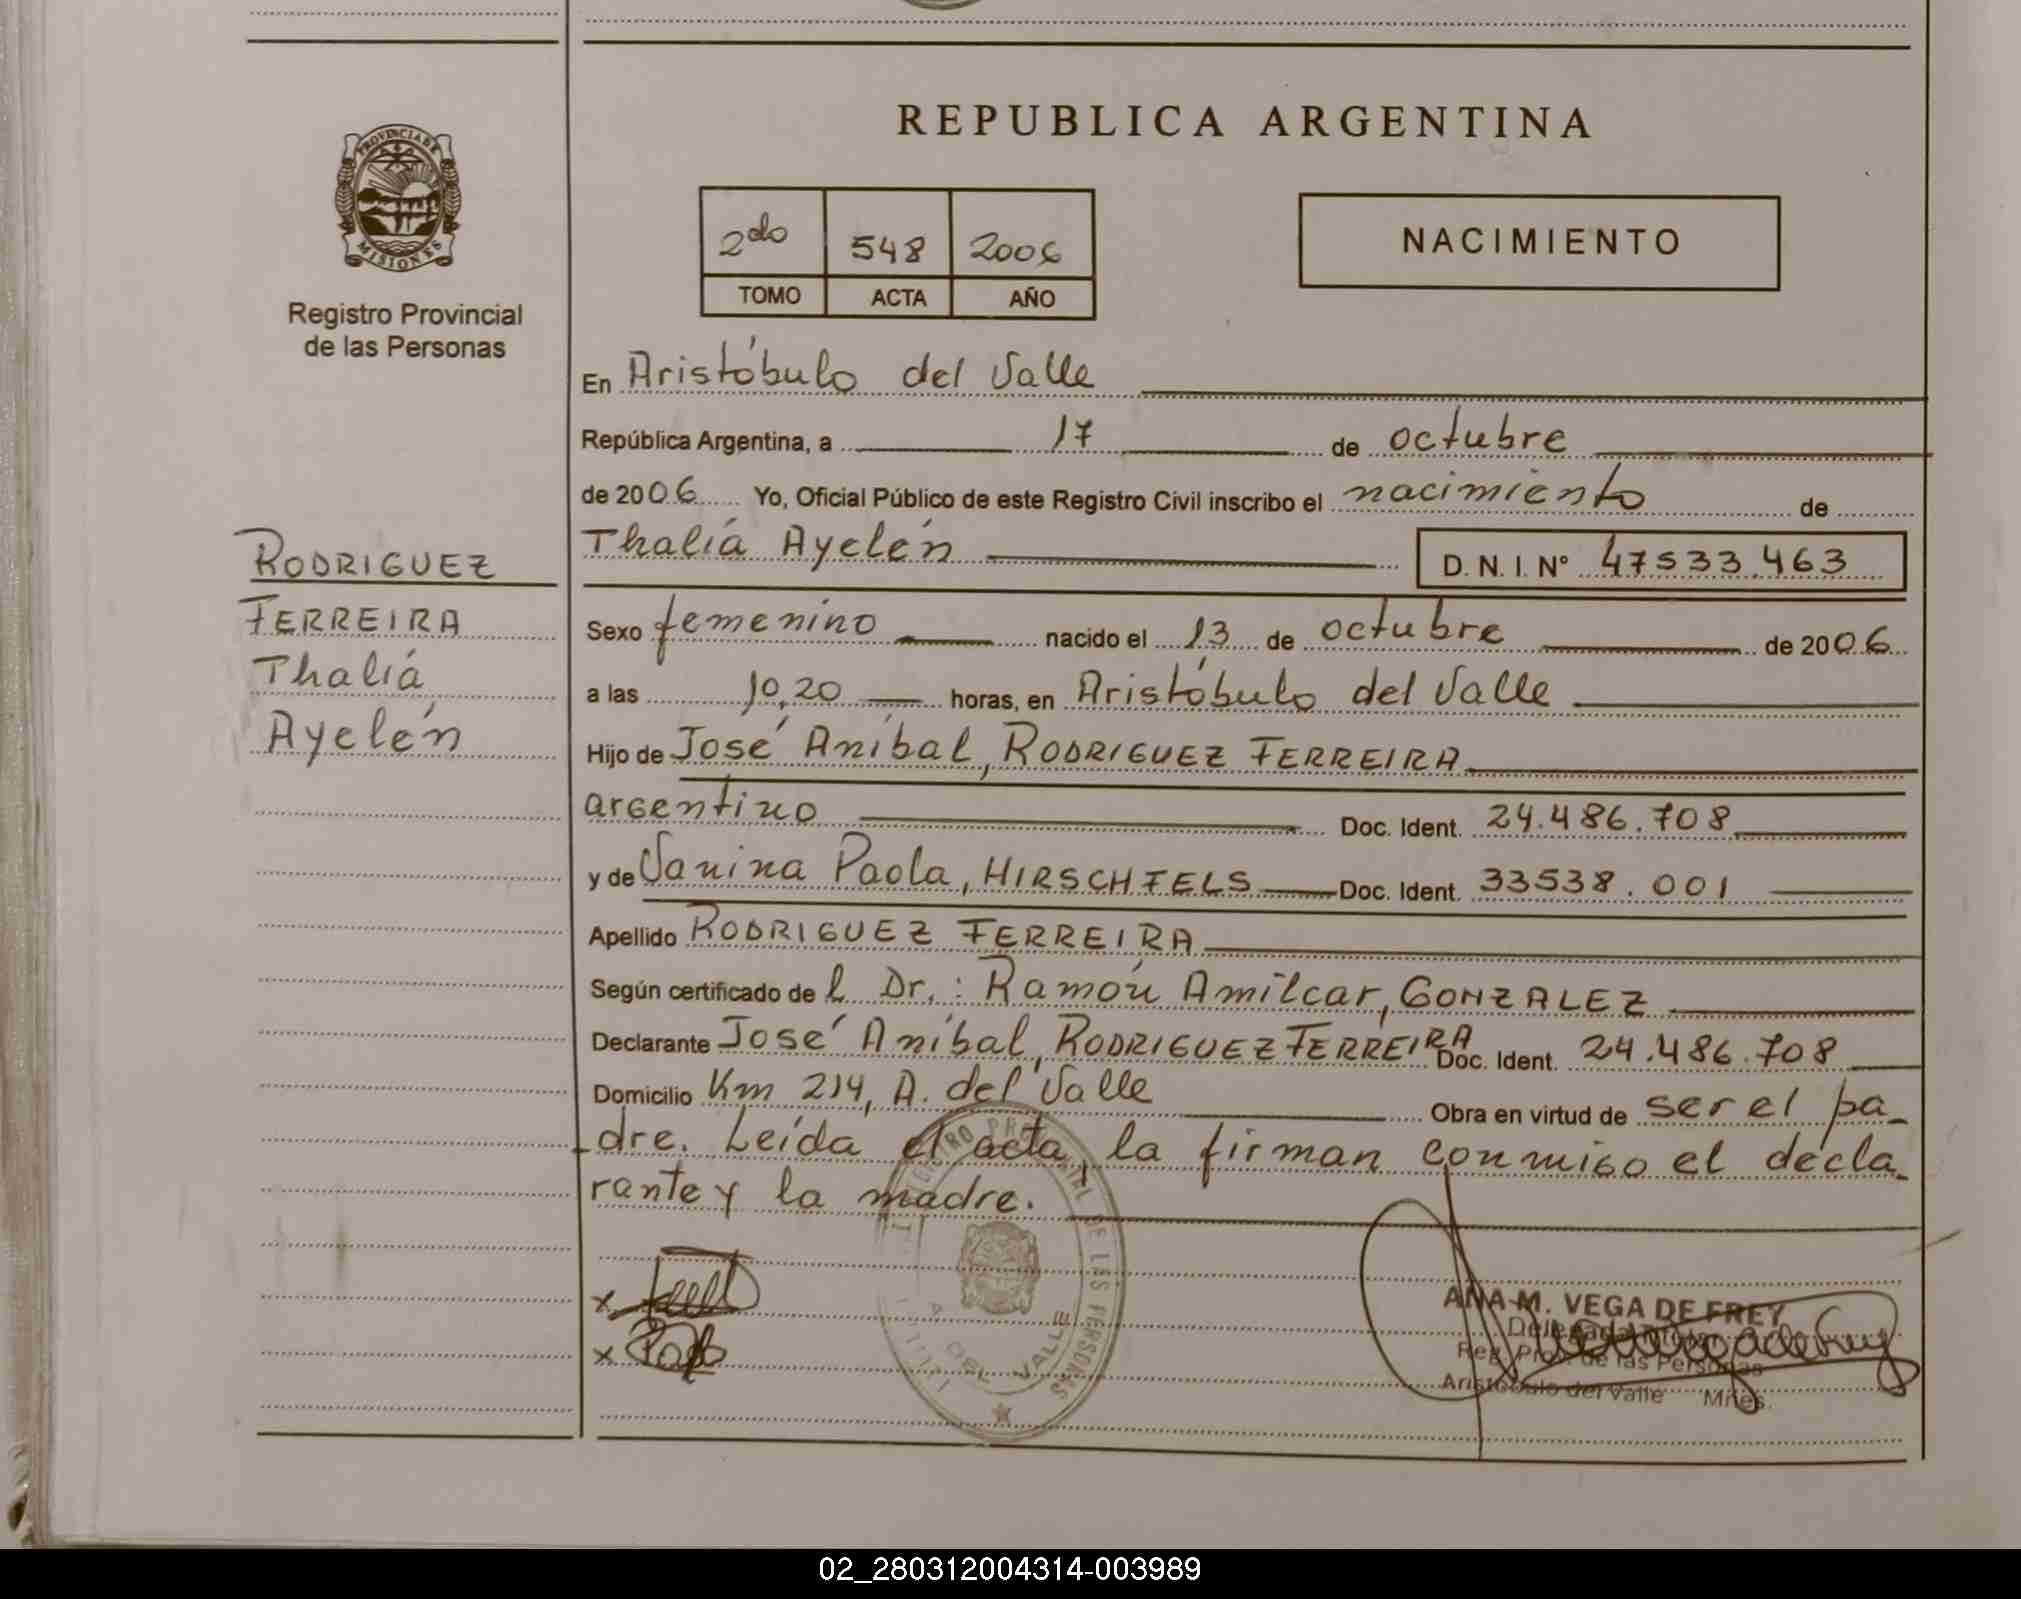 REPUBLICA ARGENTINA
PROVINCIA DE
MISIONES
Registro Provincial
de las Personas
2do 548 2006
TOMO ACTA AÑO
NACIMIENTO
En Aristóbulo del Valle
República Argentina, a 17 de octubre
de 2006 Yo, Oficial Público de este Registro Civil inscribo el nacimiento de
Thaliá Ayelén D. N. I. Nº 47533.463
RODRIGUEZ
FERREIRA
Thaliá
Ayelén
Sexo femenino nacido el 13 de octubre de 2006
a las 10,20 horas, en Aristóbulo del Valle
Hijo de José Aníbal, RODRIGUEZ FERREIRA
argentino Doc. Ident. 24.486.708
y de Vanina Paola, HIRSCHFELS Doc. Ident. 33538.001
Apellido RODRIGUEZ FERREIRA
Según certificado de l Dr.: Ramón Amilcar, GONZALEZ
Declarante José Aníbal, RODRIGUEZ FERREIRA Doc. Ident. 24.486.708
Domicilio Km 214, A. del Valle Obra en virtud de ser el pa-
dre. Leída el acta, la firman conmigo el decla-
rante y la madre.
REGISTRO PROVINCIAL DE LAS PERSONAS
A. DEL VALLE
ANA M. VEGA DE FREY
Delegada Titular
Reg. Prov. de las Personas
Aristóbulo del Valle Mnes.
02_280312004314-003989